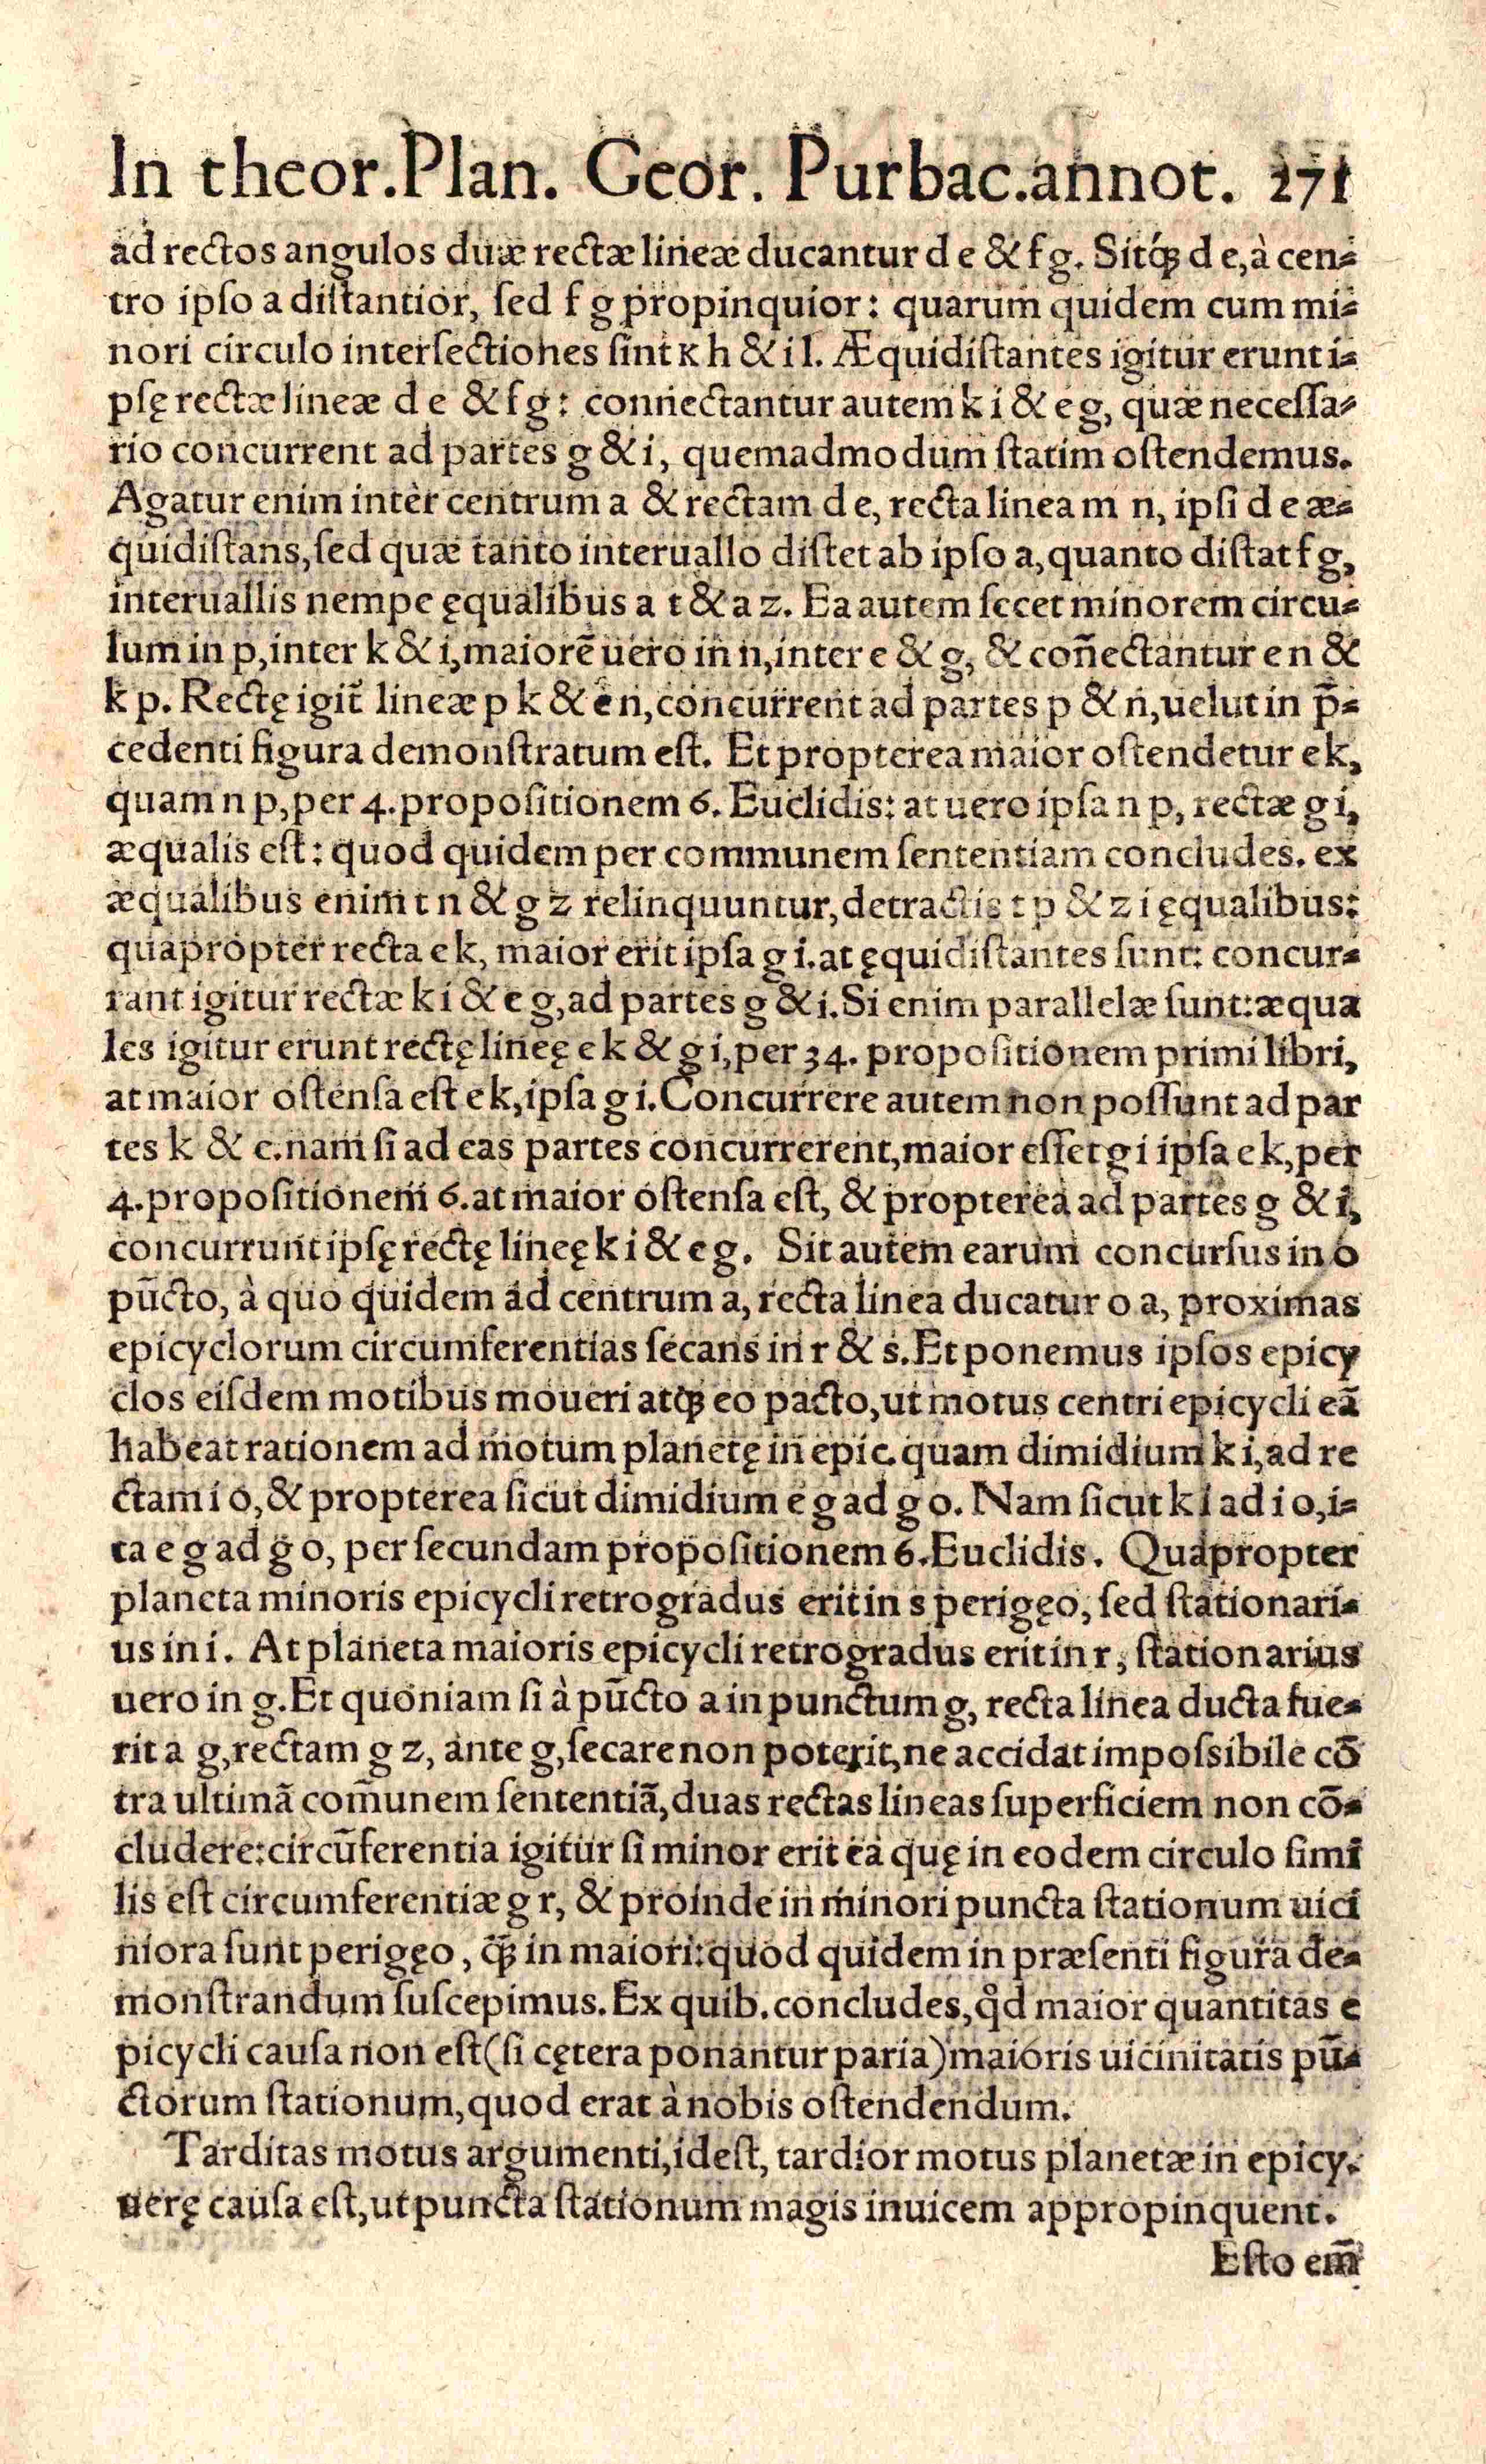 In theor. Plan. Geor. Purbac. annot. 271
ad rectos angulos duæ rectæ lineæ ducantur d e & f g. Sitq́ꝫ d e, à cen-
tro ipso a distantior, sed f g propinquior: quarum quidem cum mi-
nori circulo intersectiones sint k h & i l. Æquidistantes igitur erunt i-
psę rectæ lineæ d e & f g: connectantur autem k i & e g, quæ necessa-
rio concurrent ad partes g & i, quemadmodum statim ostendemus.
Agatur enim inter centrum a & rectam d e, recta linea m n, ipsi d e æ-
quidistans, sed quæ tanto interuallo distet ab ipso a, quanto distat f g,
interuallis nempe ęqualibus a t & a z. Ea autem secet minorem circu-
lum in p, inter k & i, maiorē uero in n, inter e & g, & con̄ectantur e n &
k p. Rectę igit̄ lineæ p k & e n, concurrent ad partes p & n, uelut in p̄-
cedenti figura demonstratum est. Et propterea maior ostendetur e k,
quam n p, per 4. propositionem 6. Euclidis: at uero ipsa n p, rectæ g i,
æqualis est: quod quidem per communem sententiam concludes. ex
æqualibus enim t n & g z relinquuntur, detractis t p & z i ęqualibus:
quapropter recta e k, maior erit ipsa g i. at ęquidistantes sunt: concur-
rant igitur rectæ k i & e g, ad partes g & i. Si enim parallelæ sunt: æqua
les igitur erunt rectę lineę e k & g i, per 34. propositionem primi libri,
at maior ostensa est e k, ipsa g i. Concurrere autem non possunt ad par
tes k & e. nam si ad eas partes concurrerent, maior esset g i ipsa e k, per
4. propositionem 6. at maior ostensa est, & propterea ad partes g & i,
concurrunt ipsę rectę lineę k i & e g. Sit autem earum concursus in o
pūcto, à quo quidem ad centrum a, recta linea ducatur o a, proximas
epicyclorum circumferentias secans in r & s. Et ponemus ipsos epicy
clos eisdem motibus moueri atqꝫ eo pacto, ut motus centri epicycli eā
habeat rationem ad motum planetę in epic. quam dimidium k i, ad re
ctam i o, & propterea sicut dimidium e g ad g o. Nam sicut k i ad i o, i-
ta e g ad g o, per secundam propositionem 6. Euclidis. Quapropter
planeta minoris epicycli retrogradus erit in s perigęo, sed stationari-
us in i. At planeta maioris epicycli retrogradus erit in r, stationarius
uero in g. Et quoniam si à pūcto a in punctum g, recta linea ducta fue-
rit a g, rectam g z, ante g, secare non poterit, ne accidat impossibile cō
tra ultimā com̄unem sententiā, duas rectas lineas superficiem non cō-
cludere: circūferentia igitur si minor erit ea quę in eodem circulo simi
lis est circumferentiæ g r, & proinde in minori puncta stationum uici
niora sunt perigęo, q̄ꝫ in maiori: quod quidem in præsenti figura de-
monstrandum suscepimus. Ex quib. concludes, qd̊ maior quantitas e
picycli causa non est (si cętera ponantur paria) maioris uicinitatis pū-
ctorum stationum, quod erat à nobis ostendendum.
Tarditas motus argumenti, idest, tardior motus planetæ in epicy.
uerę causa est, ut puncta stationum magis inuicem appropinquent.
Esto em̄